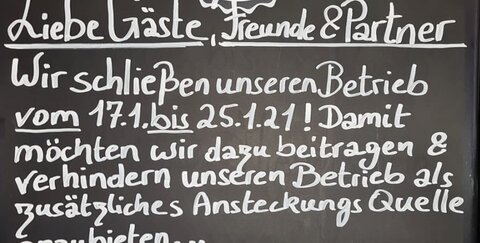 Liebe Gäste, Freunde & Partner
Wir schließen unseren Betrieb
vom 17.1. bis 25.1.21! Damit
möchten wir dazu beitragen &
verhindern unseren Betrieb als
zusätzliches Ansteckungs Quelle
anzubieten...